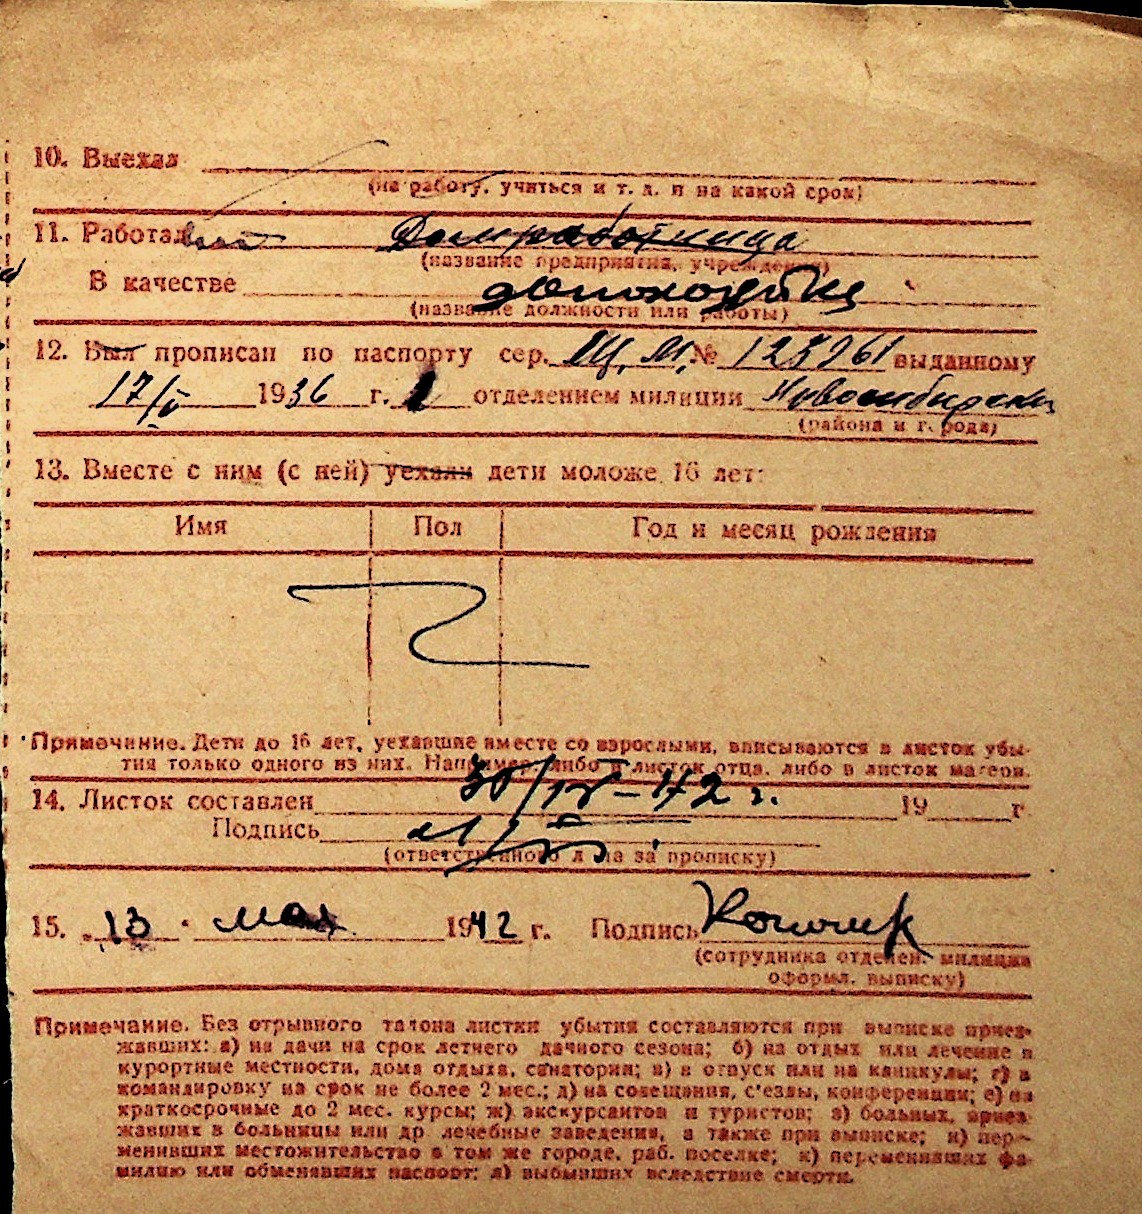 10. Выехал
(на работу, учиться и т. д. и на какой срок)
11. Работал Домработница
(название предприятия, учреждения)
В качестве
(название должности или работы)
12. Был прописан по паспорту сер. Щ. М. № 123961 выданному
17/V 1936 г. 1 отделением милиции Новосибирски
(района и города)
13. Вместе с ним (с ней) уехали дети моложе 16 лет:
Имя Пол Год и месяц рождения
Примечание. Дети до 16 лет, уехавшие вместе со взрослыми, вписываются в листок убы-
тия только одного из них. Например либо в листок отца, либо в листок матери.
14. Листок составлен 30/IV – 42 г. 19 г
Подпись
(ответственного лица за прописку)
15. 13 . мая 1942 г. Подпись
(сотрудника отделен. милиции
оформл. выписку)
Примечание. Без отрывного талона листки убытия составляются при выписке приез-
жавших: а) на дачи на срок летнего дачного сезона; б) на отдых или лечение в
курортные местности, дома отдыха, санатории; в) в отпуск или на каникулы; г) в
командировку на срок не более 2 мес.; д) на совещания, с'езды, конференции; е) на
краткосрочные до 2 мес. курсы; ж) экскурсантов и туристов; з) больных, приез-
жавших в больницы или др лечебные заведения, а также при выписке; и) пер-
менивших местожительство в том же городе, раб. поселке; к) переменивших фа-
милию или обменявших паспорт; л) выбывших вследствие смерти.